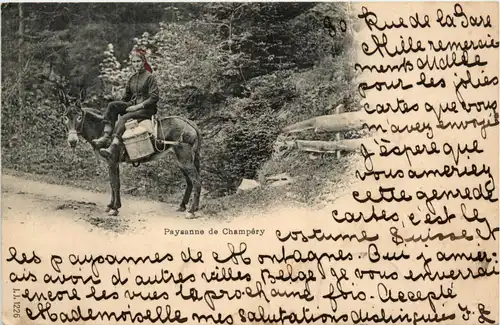 80 Rue de la Gare
Mille remercie
ments Mlle
pour les jolies
cartes que vous
m'avez envoyé
j'éspère que
vous aimeriez
cette genre de
cartes, c'est le
costume Suisse et
Paysanne de Champéry
les paysannes de Montagnes. Oui j'amer
ais avoir d'autres villes Belge je vous enverrai
encore les vues la prochaine fois. Accepté
Mademoiselle mes salutations distinguées
J.J. 1226